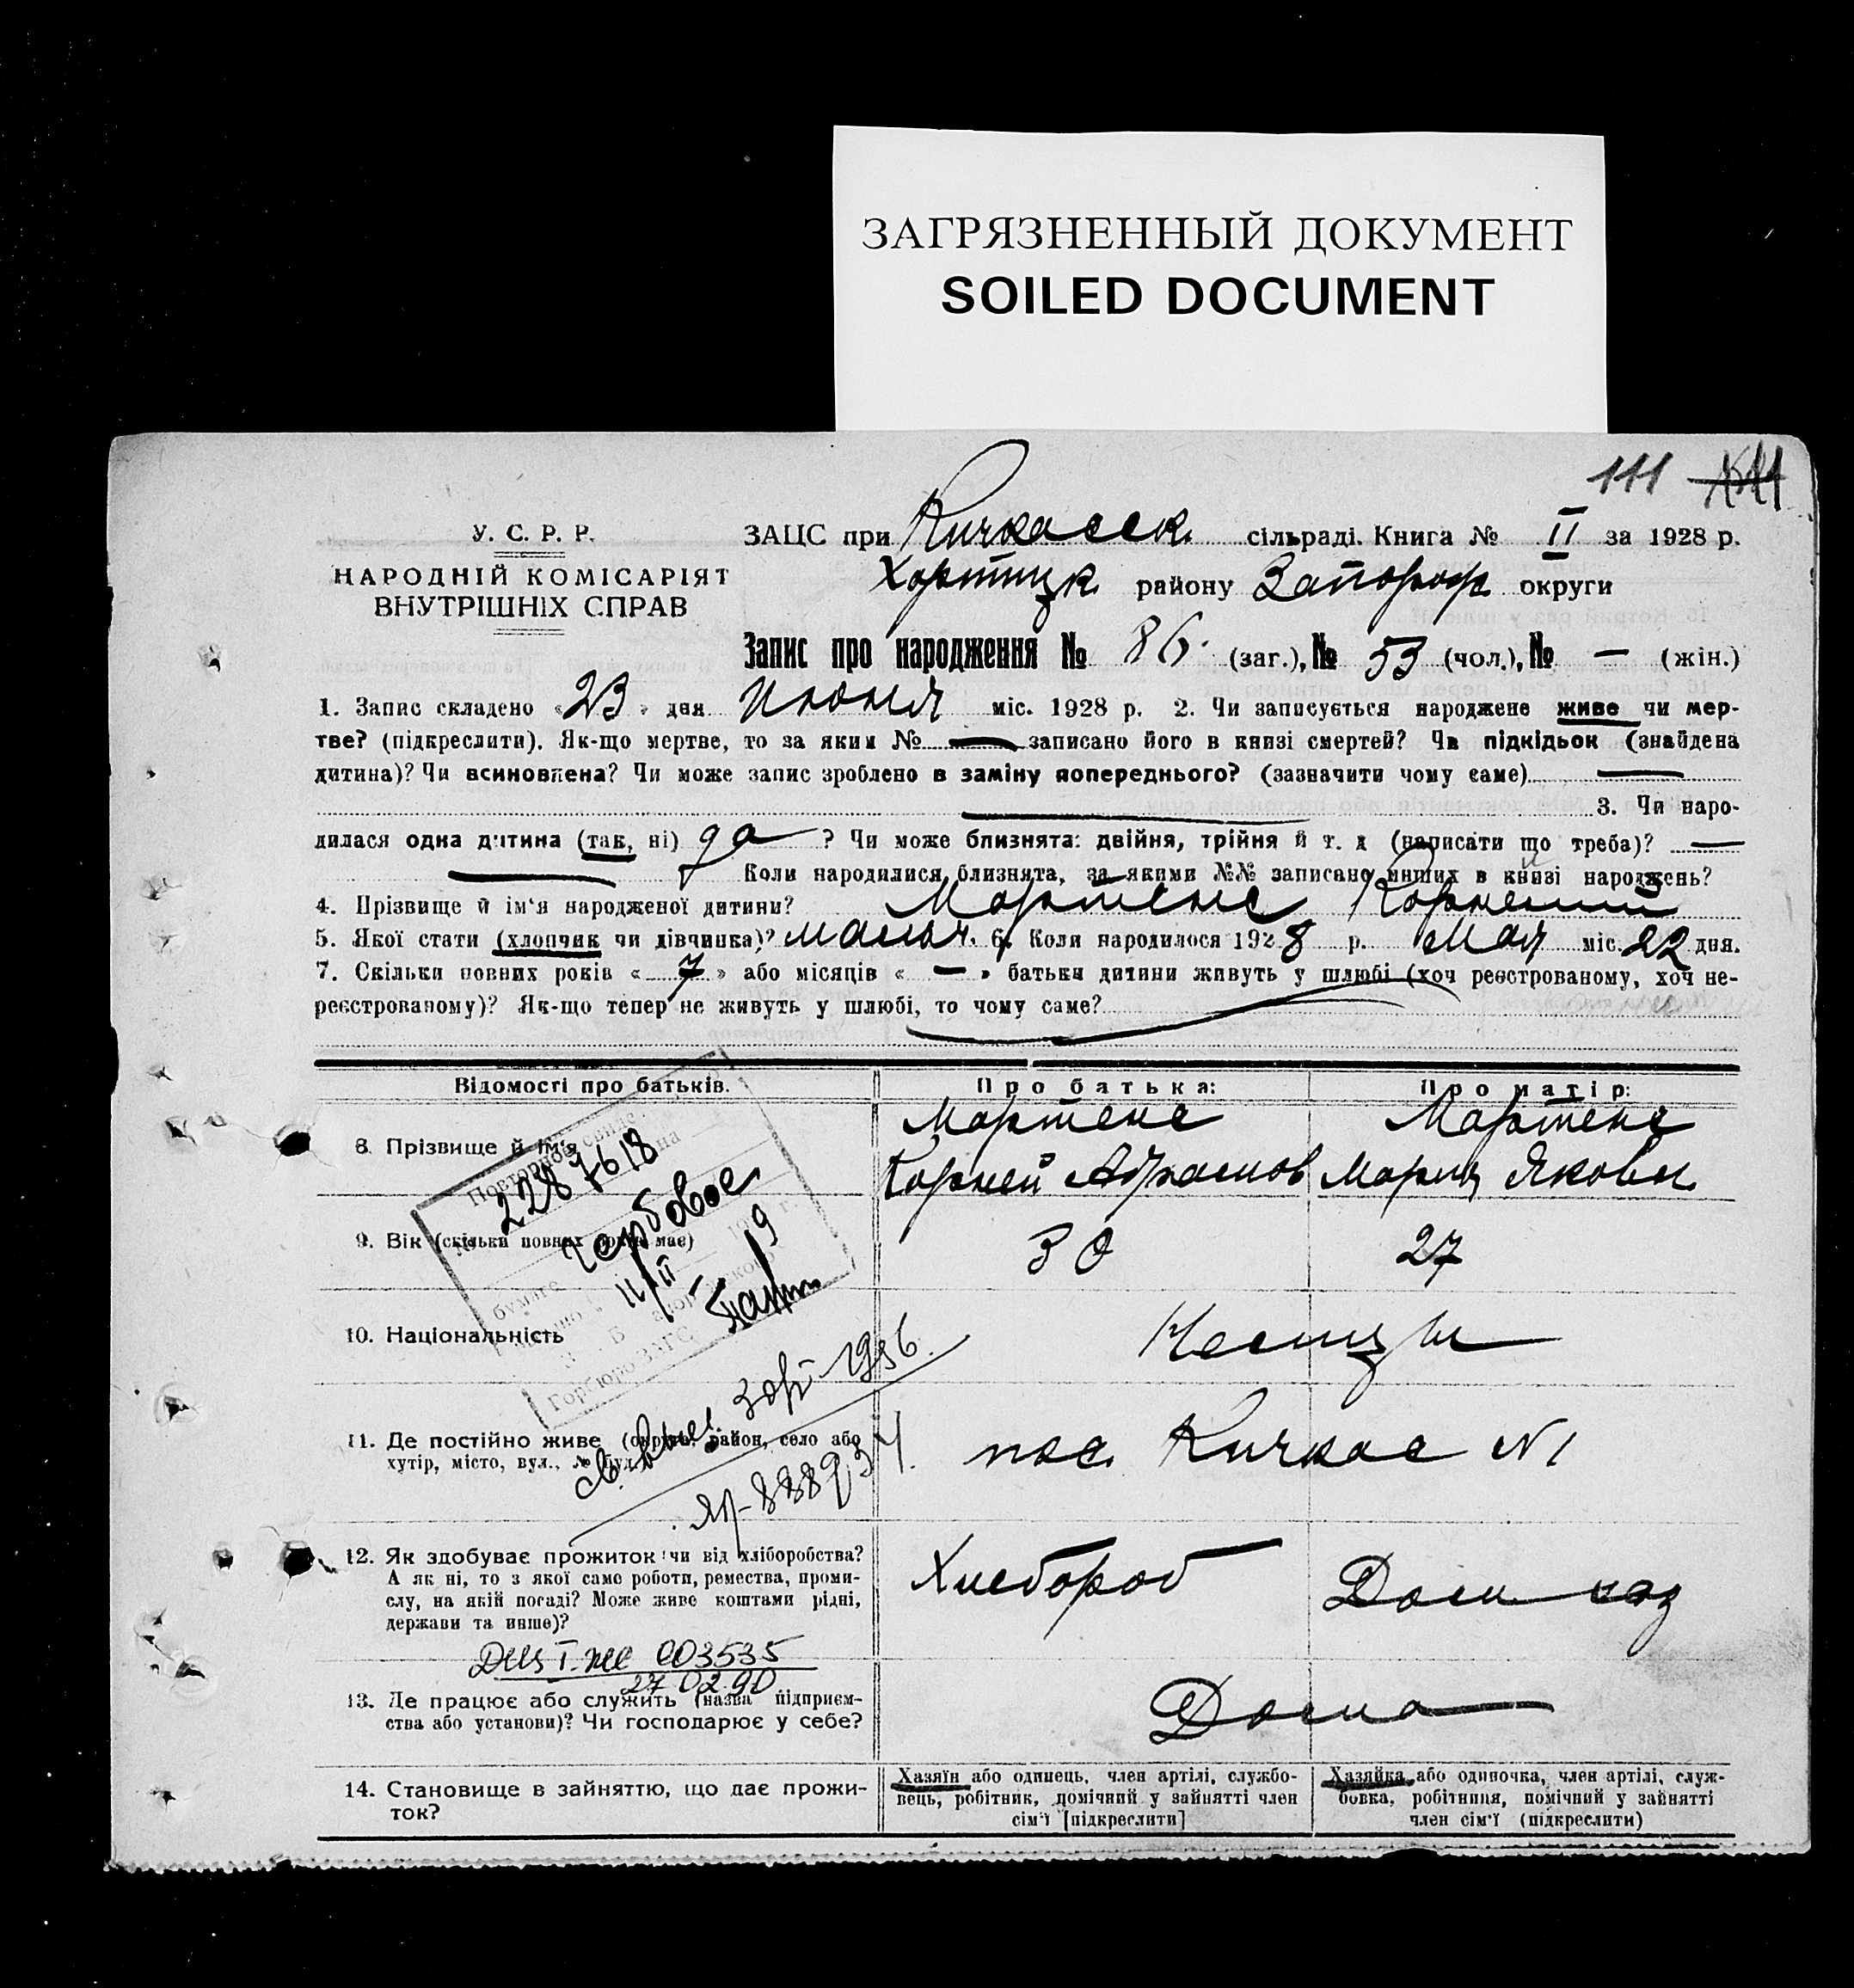 ЗАГРЯЗНЕННЫЙ ДОКУМЕНТ
SOILED DOCUMENT
111
У. С. Р. Р.
НАРОДНІЙ КОМІСАРІЯТ
ВНУТРІШНІХ СПРАВ
ЗАЦС при Кичкасск. сільраді. Книга № II за 1928 р.
Хортицк району Запорож округи
Запис про народження № 86 (заг.), № 53 (чол.), № — (жін.)
1. Запис складено «23» дня Июня міс. 1928 р. 2. Чи записується народжене живе чи мер-
тве? (підкреслити). Як-що мертве, то за яким № — записано його в книзі смертей? Чи підкідьок (знайдена
дитина)? Чи всиновлена? Чи може запис зроблено в заміну попереднього? (зазначити чому саме) —
3. Чи наро-
дилася одна дитина (так, ні) да ? Чи може близнята: двійня, трійня й т. д (написати що треба)? —
Коли народилися близнята, за якими №№ записано инших в книзі народжень?
4. Прізвище й ім'я народженої дитини? Мартенс Корнелий
5. Якої стати (хлопчик чи дівчинка)? мальч. 6. Коли народилося 1928 р. Мая міс. 22 дня.
7. Скільки повних років «7» або місяців «—» батьки дитини живуть у шлюбі (хоч реєстрованому, хоч не-
реєстрованому)? Як-що тепер не живуть у шлюбі, то чому саме?
Відомості про батьків.
Про батька:
Про матір:
8. Прізвище й ім'я
Мартенс
Корней Абрамов
Мартенс
Мария Яковл.
9. Вік (скільки повних років має)
30
27
10. Національність
Немцы
11. Де постійно живе (округа, район, село або
хутір, місто, вул., № буд.)
пос. Кичкас N1
12. Як здобуває прожиток: чи від хліборобства?
А як ні, то з якої само роботи, ремества, проми-
слу, на якій посаді? Може живе коштами рідні,
держави та инше)?
Хлебороб
Дом. хоз
13. Де працює або служить (назва підприєм-
ства або установи)? Чи господарює у себе?
Дома
14. Становище в зайняттю, що дає прожи-
ток?
Хазяїн або одинець, член артілі, службо-
вець, робітник, домічний у зайнятті член
сім'ї [підкреслити]
Хазяйка або одиночка, член артілі, служ-
бовка, робітниця, помічний у зайнятті
член сім'ї (підкреслити)
Повторное свид.
№ 2287618
бумаге гербовое
11/II
Горбюро ЗАГС
1956
003535
27.02.90